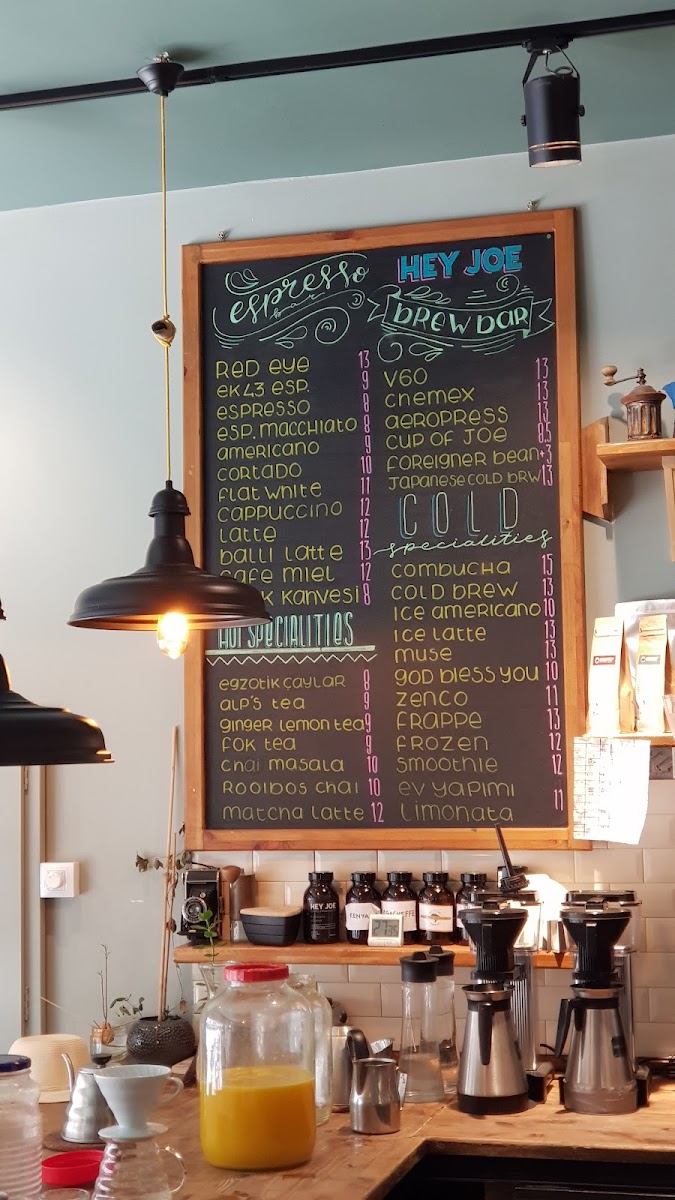 espresso
bar
RED eye 13
EK43 ESP. 9
ESPRESSO 8
ESP. MACCHIATO 8
AMERICANO 9
CORTADO 10
FLAT WHITE 11
CAPPUCCINO 12
LATTE 12
BALLI LATTE 13
CAFE MIEL 12
K KAHVESİ 8
HOT SPECIALITIES
EGZOTİK ÇAYLAR 8
ALP'S TEA 9
GINGER LEMON TEA 9
FOK TEA 9
CHAI MASALA 10
ROOIBOS CHAI 10
MATCHA LATTE 12
HEY JOE
BREW BAR
V60 13
CHEMEX 13
AEROPRESS 13
CUP OF JOE 8.5
FOREIGNER BEAN +3
JAPANESE COLD BRW 13
COLD
specialities
COMBUCHA 15
COLD BREW 13
ICE AMERICANO 10
ICE LATTE 13
MUSE 13
GOD BLESS YOU 10
ZENCO 11
FRAPPE 13
FROZEN 12
SMOOTHIE 12
EV YAPIMI
LIMONATA 11
HEY JOE
KENYA